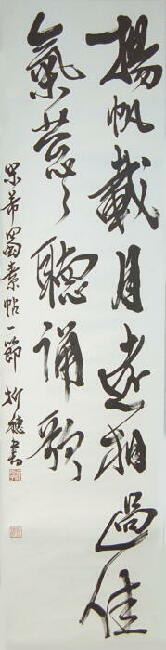 揚帆載月遠相過佳
氣葱々聽誦歌
蜀素帖一節 書